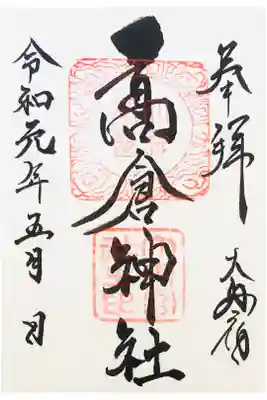 奉拝
高倉神社
令和元年五月 日